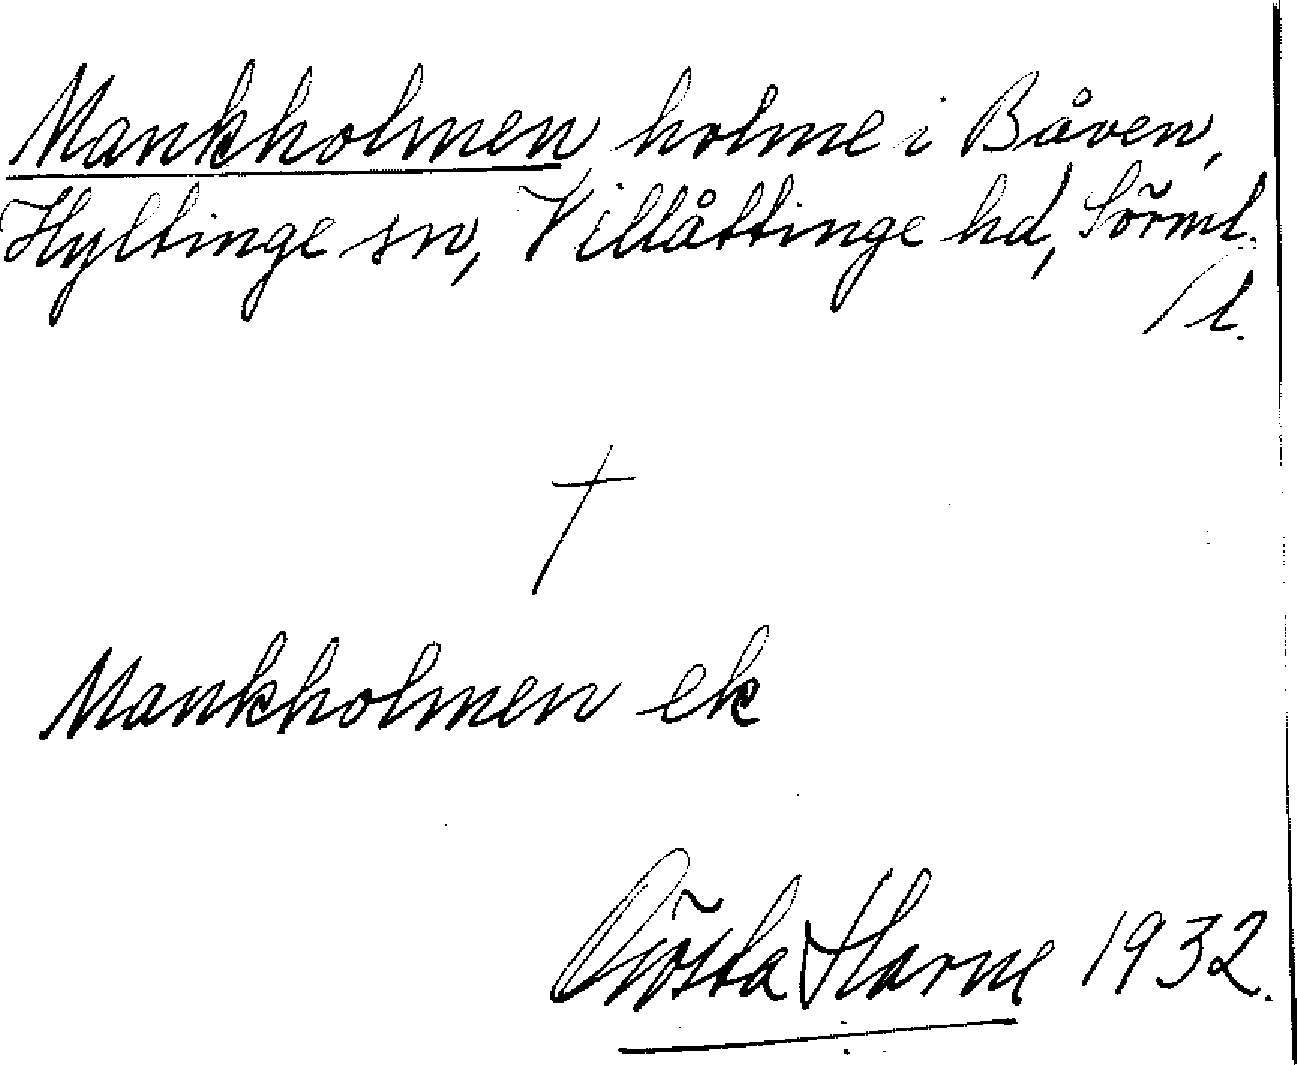 Mankholmen holme i Båven,
Hyltinge sn, Villåttinge hd, Sörml.
/l.
†
Mankholmen ek
Gösta Harne 1932.